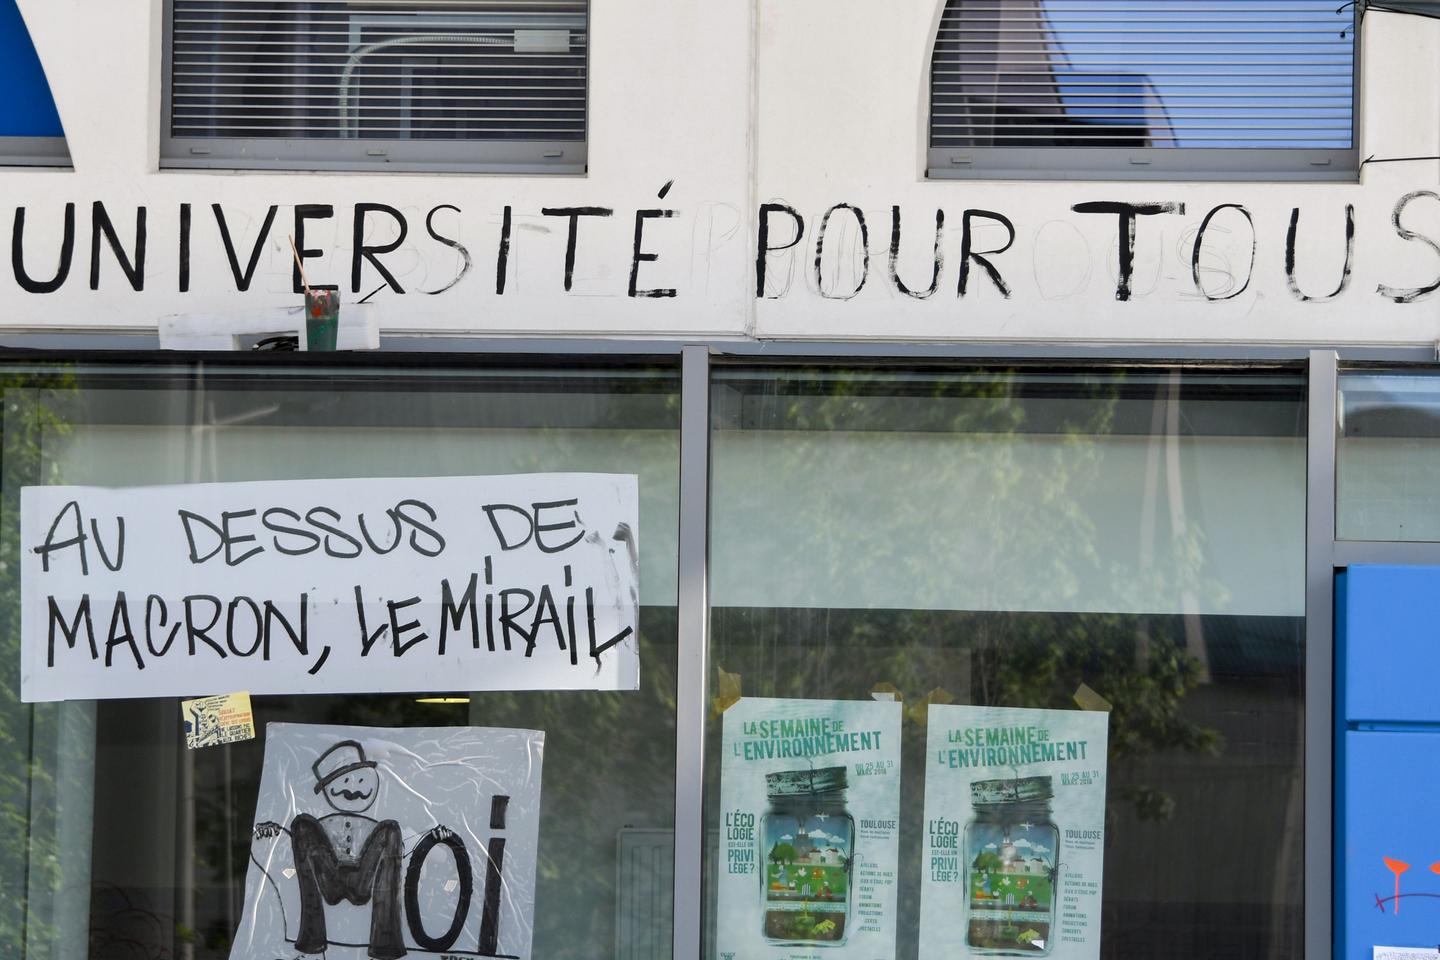 UNIVERSITÉ POUR TOUS
AU DESSUS DE
MACRON, LE MIRAIL
Moi
LA SEMAINE DE
L'ENVIRONNEMENT
DU 25 AU 31
MARS 2018
L'ÉCO
LOGIE
EST-ELLE UN
PRIVI
LÈGE ?
TOULOUSE
ATELIERS
ACTIONS DE RUES
JEUX D'ÉDUC POP
DÉBATS
FORUM
ANIMATIONS
PROJECTIONS
CONCERTS
SPECTACLES
LA SEMAINE DE
L'ENVIRONNEMENT
DU 25 AU 31
MARS 2018
L'ÉCO
LOGIE
EST-ELLE UN
PRIVI
LÈGE ?
TOULOUSE
ATELIERS
ACTIONS DE RUES
JEUX D'ÉDUC POP
DÉBATS
FORUM
ANIMATIONS
PROJECTIONS
CONCERTS
SPECTACLES